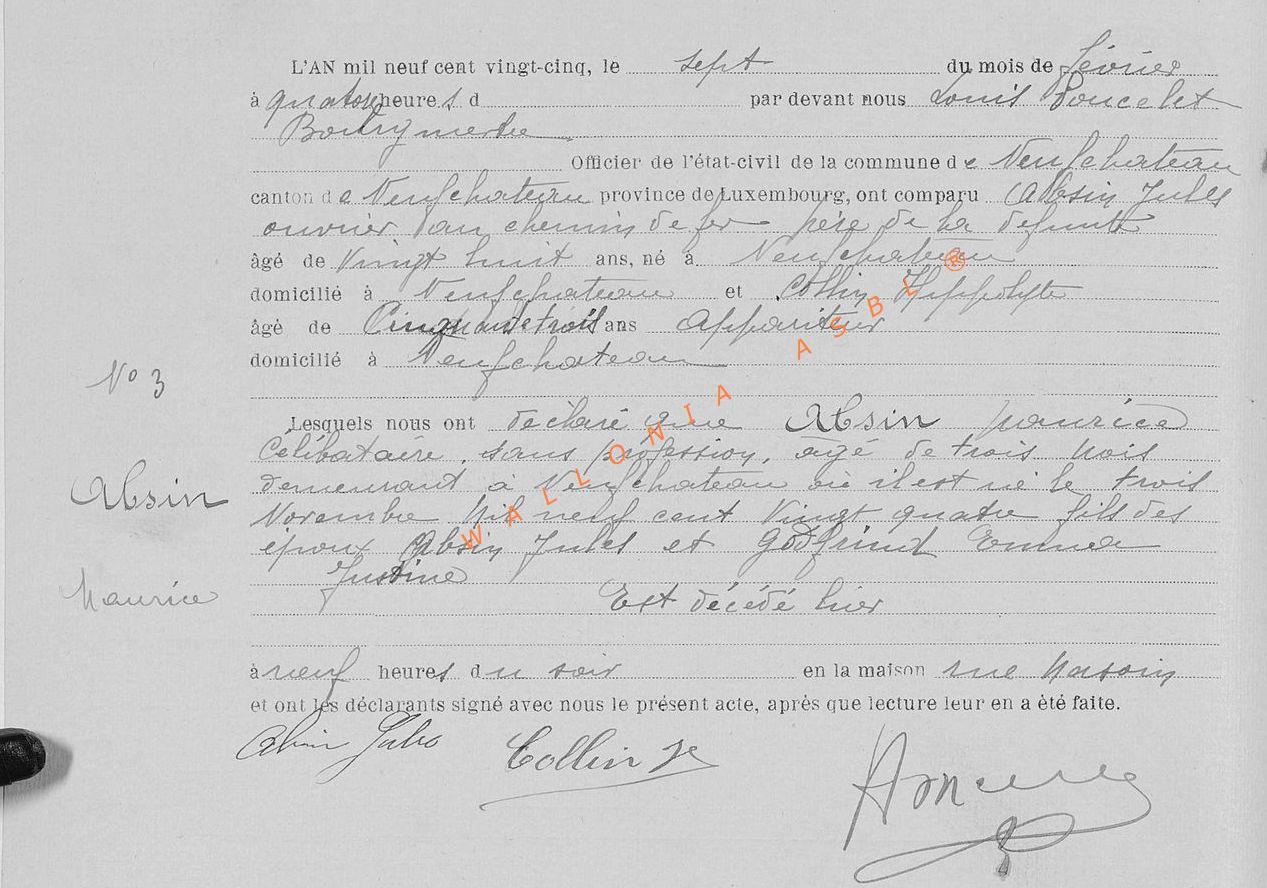 L'AN mil neuf cent vingt-cinq, le sept du mois de février
à quatorze heures d par devant nous Louis Poncelet
Bourgmestre
Officier de l'état-civil de la commune de Neufchateau
canton de Neufchateau province de Luxembourg, ont comparu Absin Jules
ouvrier au chemin de fer père de la defunte
âgé de Vingt huit ans, né à Neufchateau
domicilié à Neufchateau et Collin Hippolyte
âgé de Cinquante trois ans Appariteur
domicilié à Neufchateau
No 3
Lesquels nous ont déclaré que Absin Maurice
Célibataire, sans profession, âgé de trois Mois
demeurant a Neufchateau où il est né le trois
Absin
Novembre Mil neuf cent Vingt quatre fils des
époux Absin Jules et Godfrind Emma
Justine
Maurice
Est décédé hier
à neuf heures du soir en la maison rue
et ont les déclarants signé avec nous le présent acte, après que lecture leur en a été faite.
Absin Jules Collin
WALLONIA ASBL ®